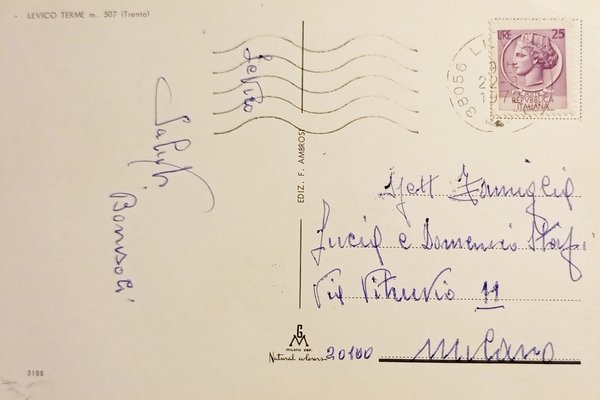 LEVICO TERME m. 507 (Trento)
Levico
Saluti
Bonisoli
EDIZ. F. AMBROSI
LIRE 25
REPVBBLICA
ITALIANA
38056 L
Spett Famiglia
Lucia e Domenico
Via Vitruvio 11
20100 Milano
GM
MILANO DEP.
Natural colours
3186